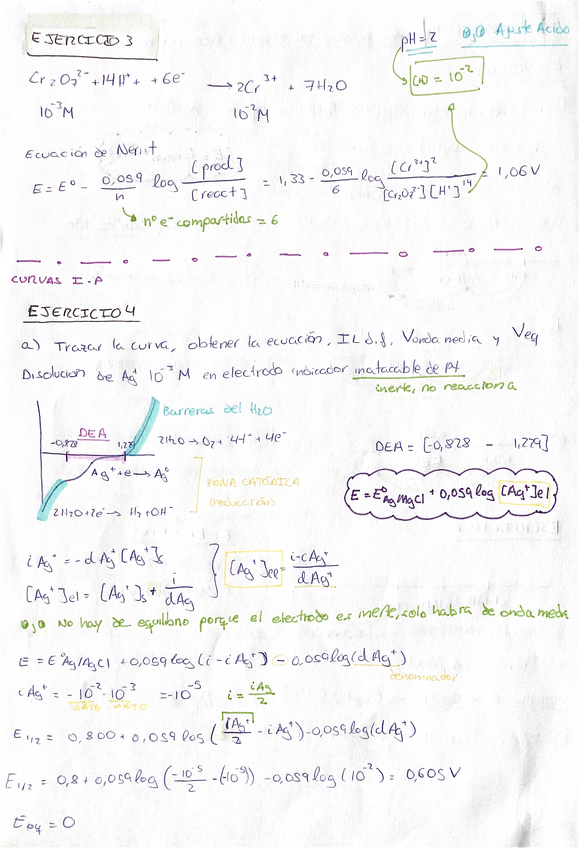 EJERCICIO 3
pH = 2
Ajuste Ácido
Cr2O7²⁻ + 14H⁺ + 6e⁻ → 2Cr³⁺ + 7H2O
10⁻³M 10⁻²M
= 10⁻²
Ecuación de Nernst
E = E⁰ - 0,059/n log [prod]/[react] = 1,33 - 0,059/6 log [Cr³⁺]²/[Cr2O7²⁻][H⁺]¹⁴ = 1,06 V
nº e⁻ compartidos = 6
CURVAS I-A
EJERCICIO 4
a) Trazar la curva, obtener la ecuación, IL dif, Vonda media y Veq
Disolución de Ag⁺ 10⁻³ M en electrodo indicador inatacable de Pt
inerte, no reacciona
Barreras del H2O
-0,828 DEA 1,229
2H2O → O2 + 4H⁺ + 4e⁻
Ag⁺ + e → Ag⁰
2H2O + 2e⁻ → H2 + OH⁻
ZONA CATÓDICA
(reducción)
DEA = [-0,828 - 1,229]
E = E⁰Ag/AgCl + 0,059 log [Ag⁺]el
iAg⁺ = -dAg⁺[Ag⁺]s
[Ag⁺]el = [Ag⁺]s + i/dAg
[Ag⁺]el = i-iAg⁺/dAg⁺
No hay de equilibrio porque el electrodo es inerte, solo habrá de onda media
E = E⁰Ag/AgCl + 0,059 log (i - iAg⁺) - 0,059 log (dAg⁺)
denominador
iAg⁺ = -10⁻² · 10⁻³ = -10⁻⁵ i = iAg/2
DATO DATO
E1/2 = 0,800 + 0,059 log (iAg⁺/2 - iAg⁺) - 0,059 log (dAg⁺)
E1/2 = 0,8 + 0,059 log (-10⁻⁵/2 - (-10⁻⁵)) - 0,059 log (10⁻²) = 0,605 V
Eeq = 0